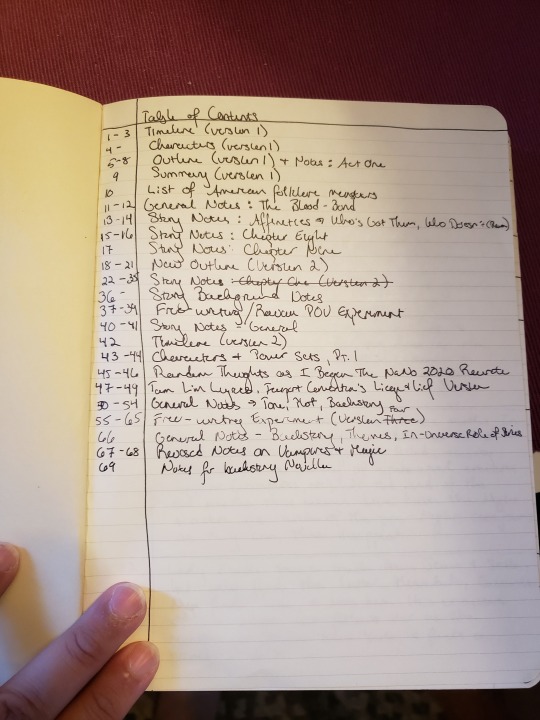 Table of Contents
1-3 Timeline (version 1)
4- Characters (version 1)
5-8 Outline (version 1) + Notes: Act One
9 Summary (version 1)
10 List of American folklore monsters
11-12 General Notes: The Blood-Bond
13-14 Story Notes: Affinities → Who's Got Them, Who Doesn't
15-16 Story Notes: Chapter Eight
17 Story Notes: Chapter Nine
18-21 New Outline (Version 2)
22-35 Story Notes: Chapter One (Version 2)
36 Story Background Notes
37-39 Free writing / Raivan POV Experiment
40-41 Story Notes - General
42 Timeline (version 2)
43-44 Characters + Power Sets, Pt. 1
45-46 Random Thoughts as I Begin The NaNo 2020 Rewrite
47-49 Tam Lin Lyrics, Fairport Convention's Liege & Lief Version
50-54 General Notes → Tone, Plot, Backstory
55-65 Free-writing Experiment (Version Three Four)
66 General Notes - Backstory, Themes, In-Universe Role of Series
67-68 Revised Notes on Vampires + Magic
69 Notes for backstory Novella